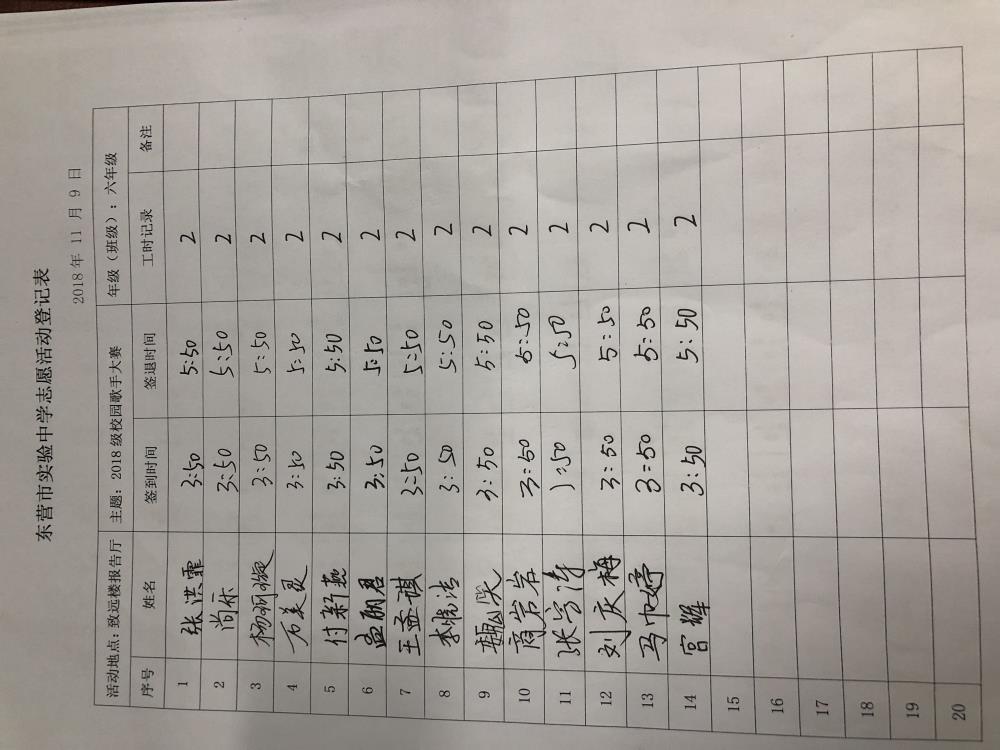 东营市实验中学志愿活动登记表
2018 年 11 月 9 日
活动地点：致远楼报告厅 主题：2018 级校园歌手大赛 年级（班级）：六年级
序号 姓名 签到时间 签退时间 工时记录 备注
1 张洪霏 3:50 5:50 2
2 尚 3:50 5:50 2
3 杨 3:50 5:50 2
4 万美灵 3:50 5:50 2
5 付新燕 3:50 5:50 2
6 孟丽君 3:50 5:50 2
7 王孟琪 3:50 5:50 2
8 李晓洁 3:50 5:50 2
9 3:50 5:50 2
10 商岩岩 3:50 5:50 2
11 张学涛 3:50 5:50 2
12 刘庆梅 3:50 5:50 2
13 马巾婷 3:50 5:50 2
14 宫辉 3:50 5:50 2
15
16
17
18
19
20